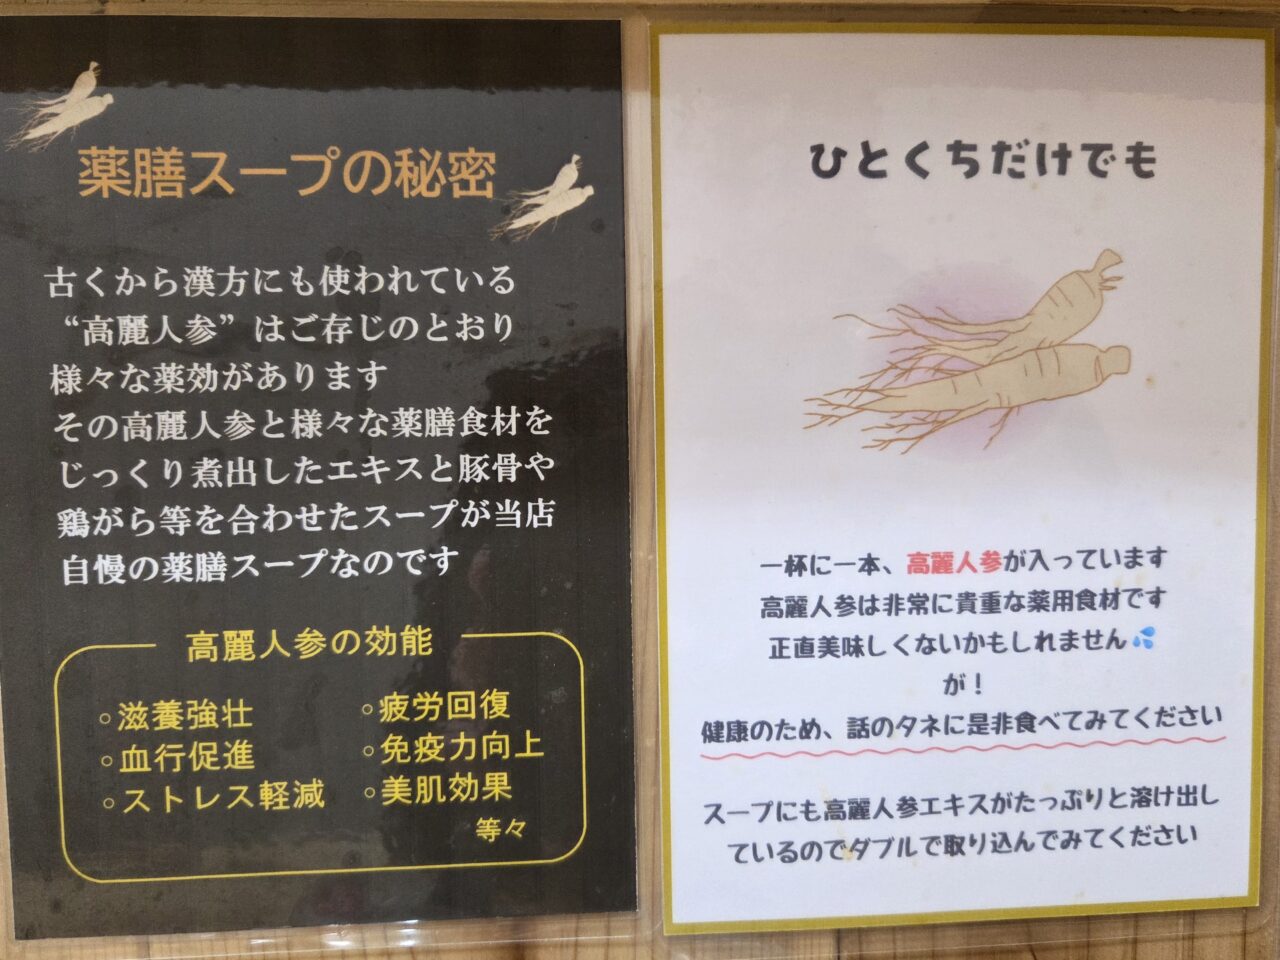 薬膳スープの秘密
古くから漢方にも使われている
“高麗人参”はご存じのとおり
様々な薬効があります
その高麗人参と様々な薬膳食材を
じっくり煮出したエキスと豚骨や
鶏がら等を合わせたスープが当店
自慢の薬膳スープなのです
高麗人参の効能
○滋養強壮
○血行促進
○ストレス軽減
○疲労回復
○免疫力向上
○美肌効果
等々
ひとくちだけでも
一杯に一本、高麗人参が入っています
高麗人参は非常に貴重な薬用食材です
正直美味しくないかもしれません💦
が！
健康のため、話のタネに是非食べてみてください
スープにも高麗人参エキスがたっぷりと溶け出し
ているのでダブルで取り込んでみてください